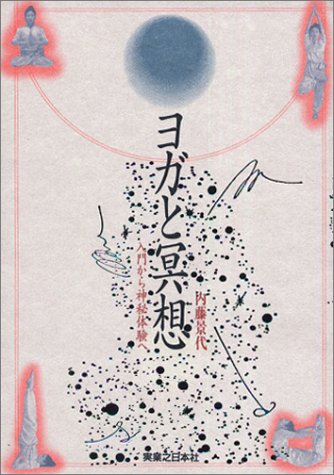 ヨガと冥想
入門から神秘体験へ
内藤景代
実業之日本社